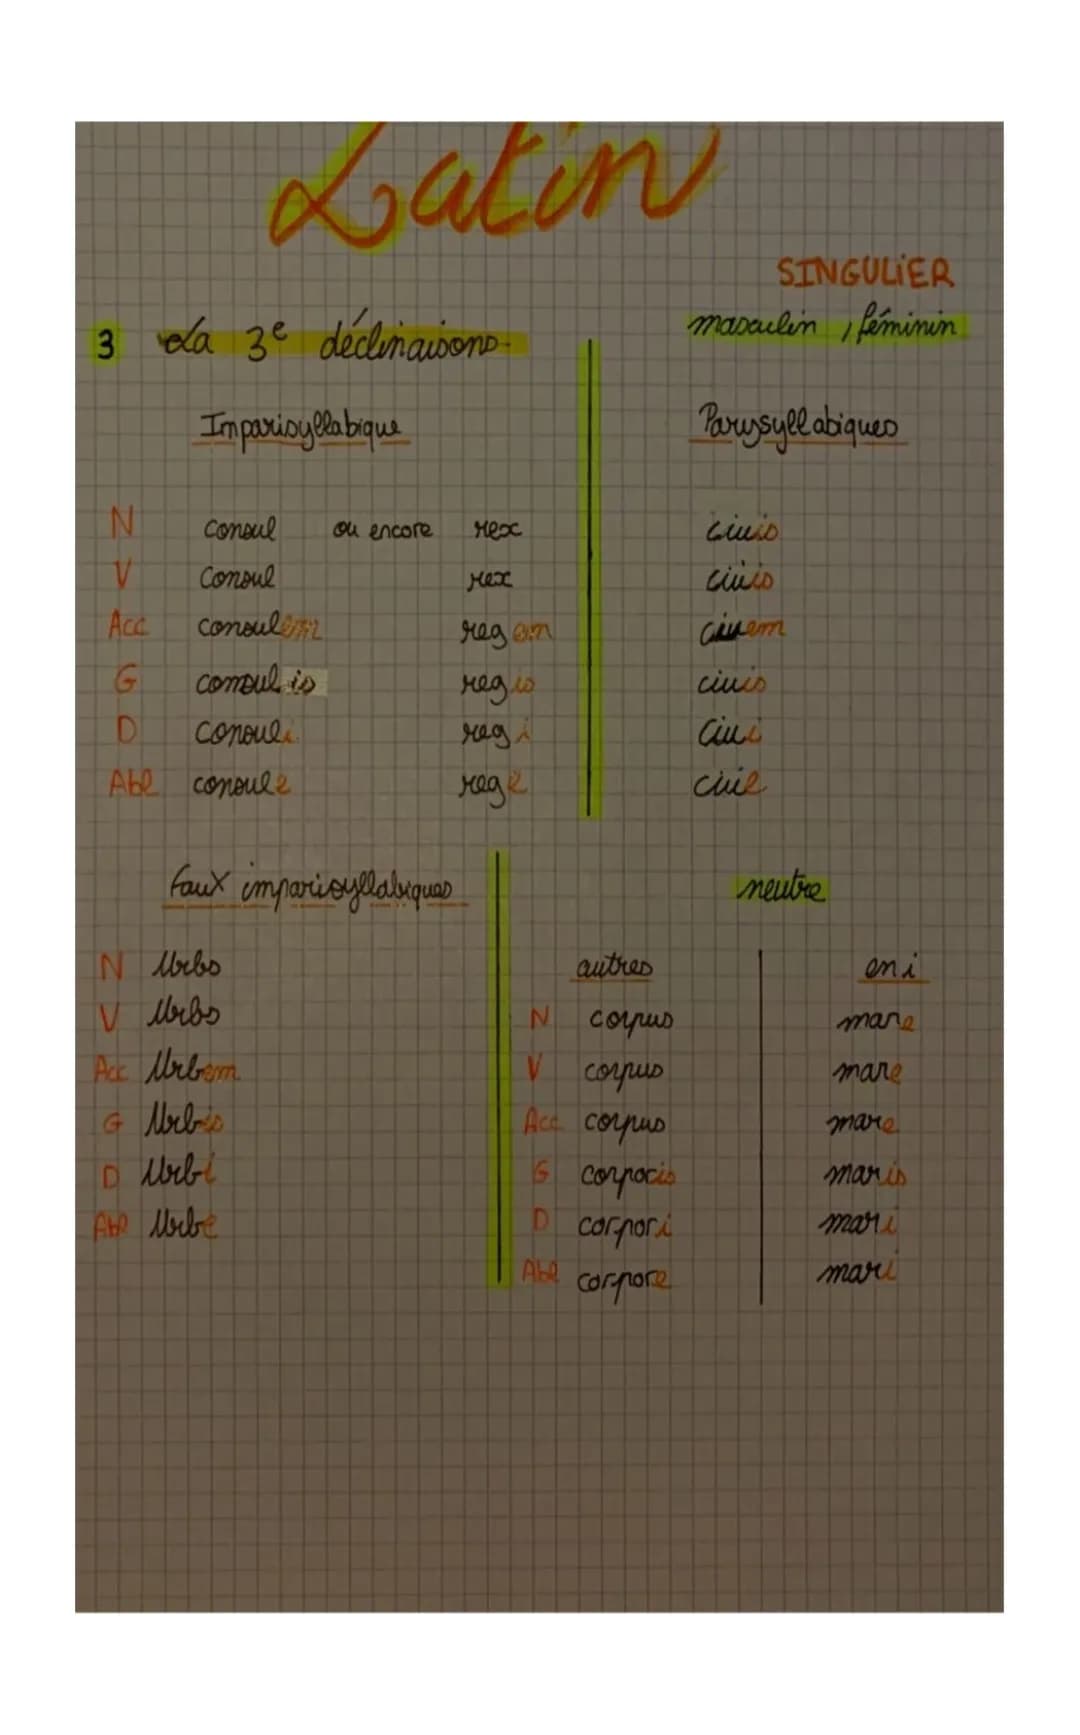 Latin
SINGULIER
masculin, féminin
3 La 3e déclinaisons
Imparisyllabique
Parysyllabiques
N consul ou encore rex
V Consul rex
Acc consulem regem
G consul is regis
D Consuli regi
Abl consule rege
ciuis
ciuis
ciuem
ciuis
Ciui
ciue
Faux imparisyllabiques
N Urbs
V Urbs
Acc Urbem
G Urbis
D Urbi
Abl Urbe
neutre
autres
N corpus
V corpus
Acc corpus
G corporis
D corpori
Abl corpore
en i
mare
mare
mare
maris
mari
mari